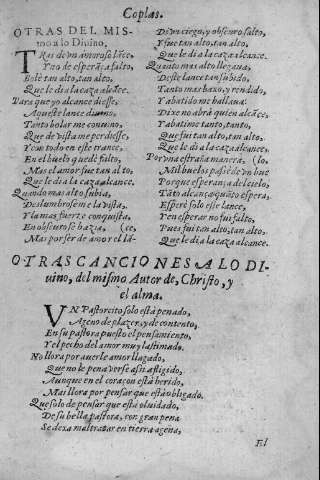 Coplas.
OTRAS DEL MIS-
mo a lo Diuino,
TRas de vn amoroso lāce,
Y no de esperāça falto,
Bolè tan alto, tan alto,
Que le di a la caza alcāce.
Para que yo alcance diesse,
Aqueste lance diuino,
Tanto bolar me conuino,
Que de vista me perdiesse,
Y con todo en este trance,
En el buelo quedè falto,
Mas el amor fue tan alto
Que le di a la caza alcance.
Quando mas alto subia,
Deslumbroseme la vista,
Y la mas fuerte conquista,
En obscuro se hazia, (ce,
Mas por ser de amor el lā-
Di vn ciego, y obscuro salto,
Y fue tan alto, tan alto,
Que le di a la caza alcance.
Quanto mas alto llegaua,
Deste lance tan subido,
Tanto mas baxo, y rendido,
Y abatido me hallaua:
Dixe no abrà quien alcāce,
Y abatime tanto, tanto,
Que fui tan alto, tan alto,
Que le di a la caza alcance.
Por vna estraña manera, (lo,
Mil buelos passè de vn bue
Porque esperança de cielo,
Tāto alcança quāto espera,
Esperè solo este lance,
Y en esperar no fui falto,
Pues fui tan alto, tan alto,
Que le di a la caza alcance.
OTRAS CANCIONES A LO DI-
uino, del mismo Autor de, Christo, y
el alma.
VN Pastorcito solo està penado,
Ageno de plazer, y de contento,
En su pastora puesto el pensamiento,
Y el pecho del amor muy lastimado.
No llora por auerle amor llagado,
Que no le pena verse asi afligido,
Aunque en el coraçon està herido,
Mas llora por pensar que està oluidado.
Que solo de pensar que està oluidado,
De su bella pastora, con gran pena
Se dexa maltratar en tierra agena,
El